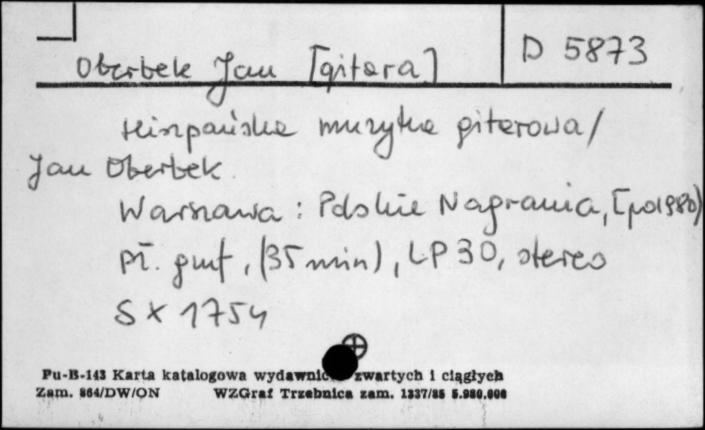 D 5873
Oberbek Jan [gitara]
Hiszpańska muzyka gitarowa /
Jan Oberbek.
Warszawa : Polskie Nagrania, [po1980]
Pł. gmf, (35 min), LP 30, stereo
SX 1754
Pu-B-143 Karta katalogowa zwartych i ciągłych
Zam. 864/DW/ON WZGraf Trzebnica zam. 1337/85 5.980.000